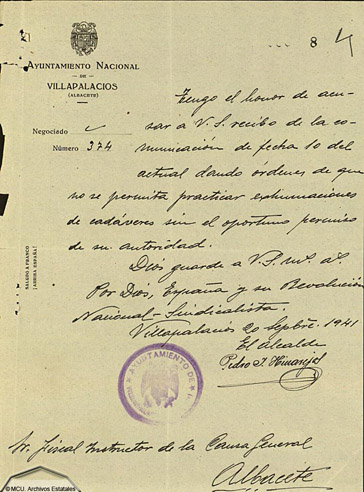 8
4
AYUNTAMIENTO NACIONAL
DE
VILLAPALACIOS
(ALBACETE)
Negociado
Número 374
SALUDO A FRANCO
¡ARRIBA ESPAÑA!
Tengo el honor de acu-
sar a V. S. recibo de la co-
municación de fecha 10 del
actual dando órdenes de que
no se permita practicar exhumaciones
de cadáveres sin el oportuno permiso
de su autoridad.
Dios guarde a V. S. m. a.
Por Dios, España y su Revolución
Nacional-Sindicalista.
Villapalacios 20 Septbre. 1941
El Alcalde
Pedro J.
AYUNTAMIENTO DE
Sr. Fiscal Instructor de la Causa General
Albacete
© MCU. Archivos Estatales